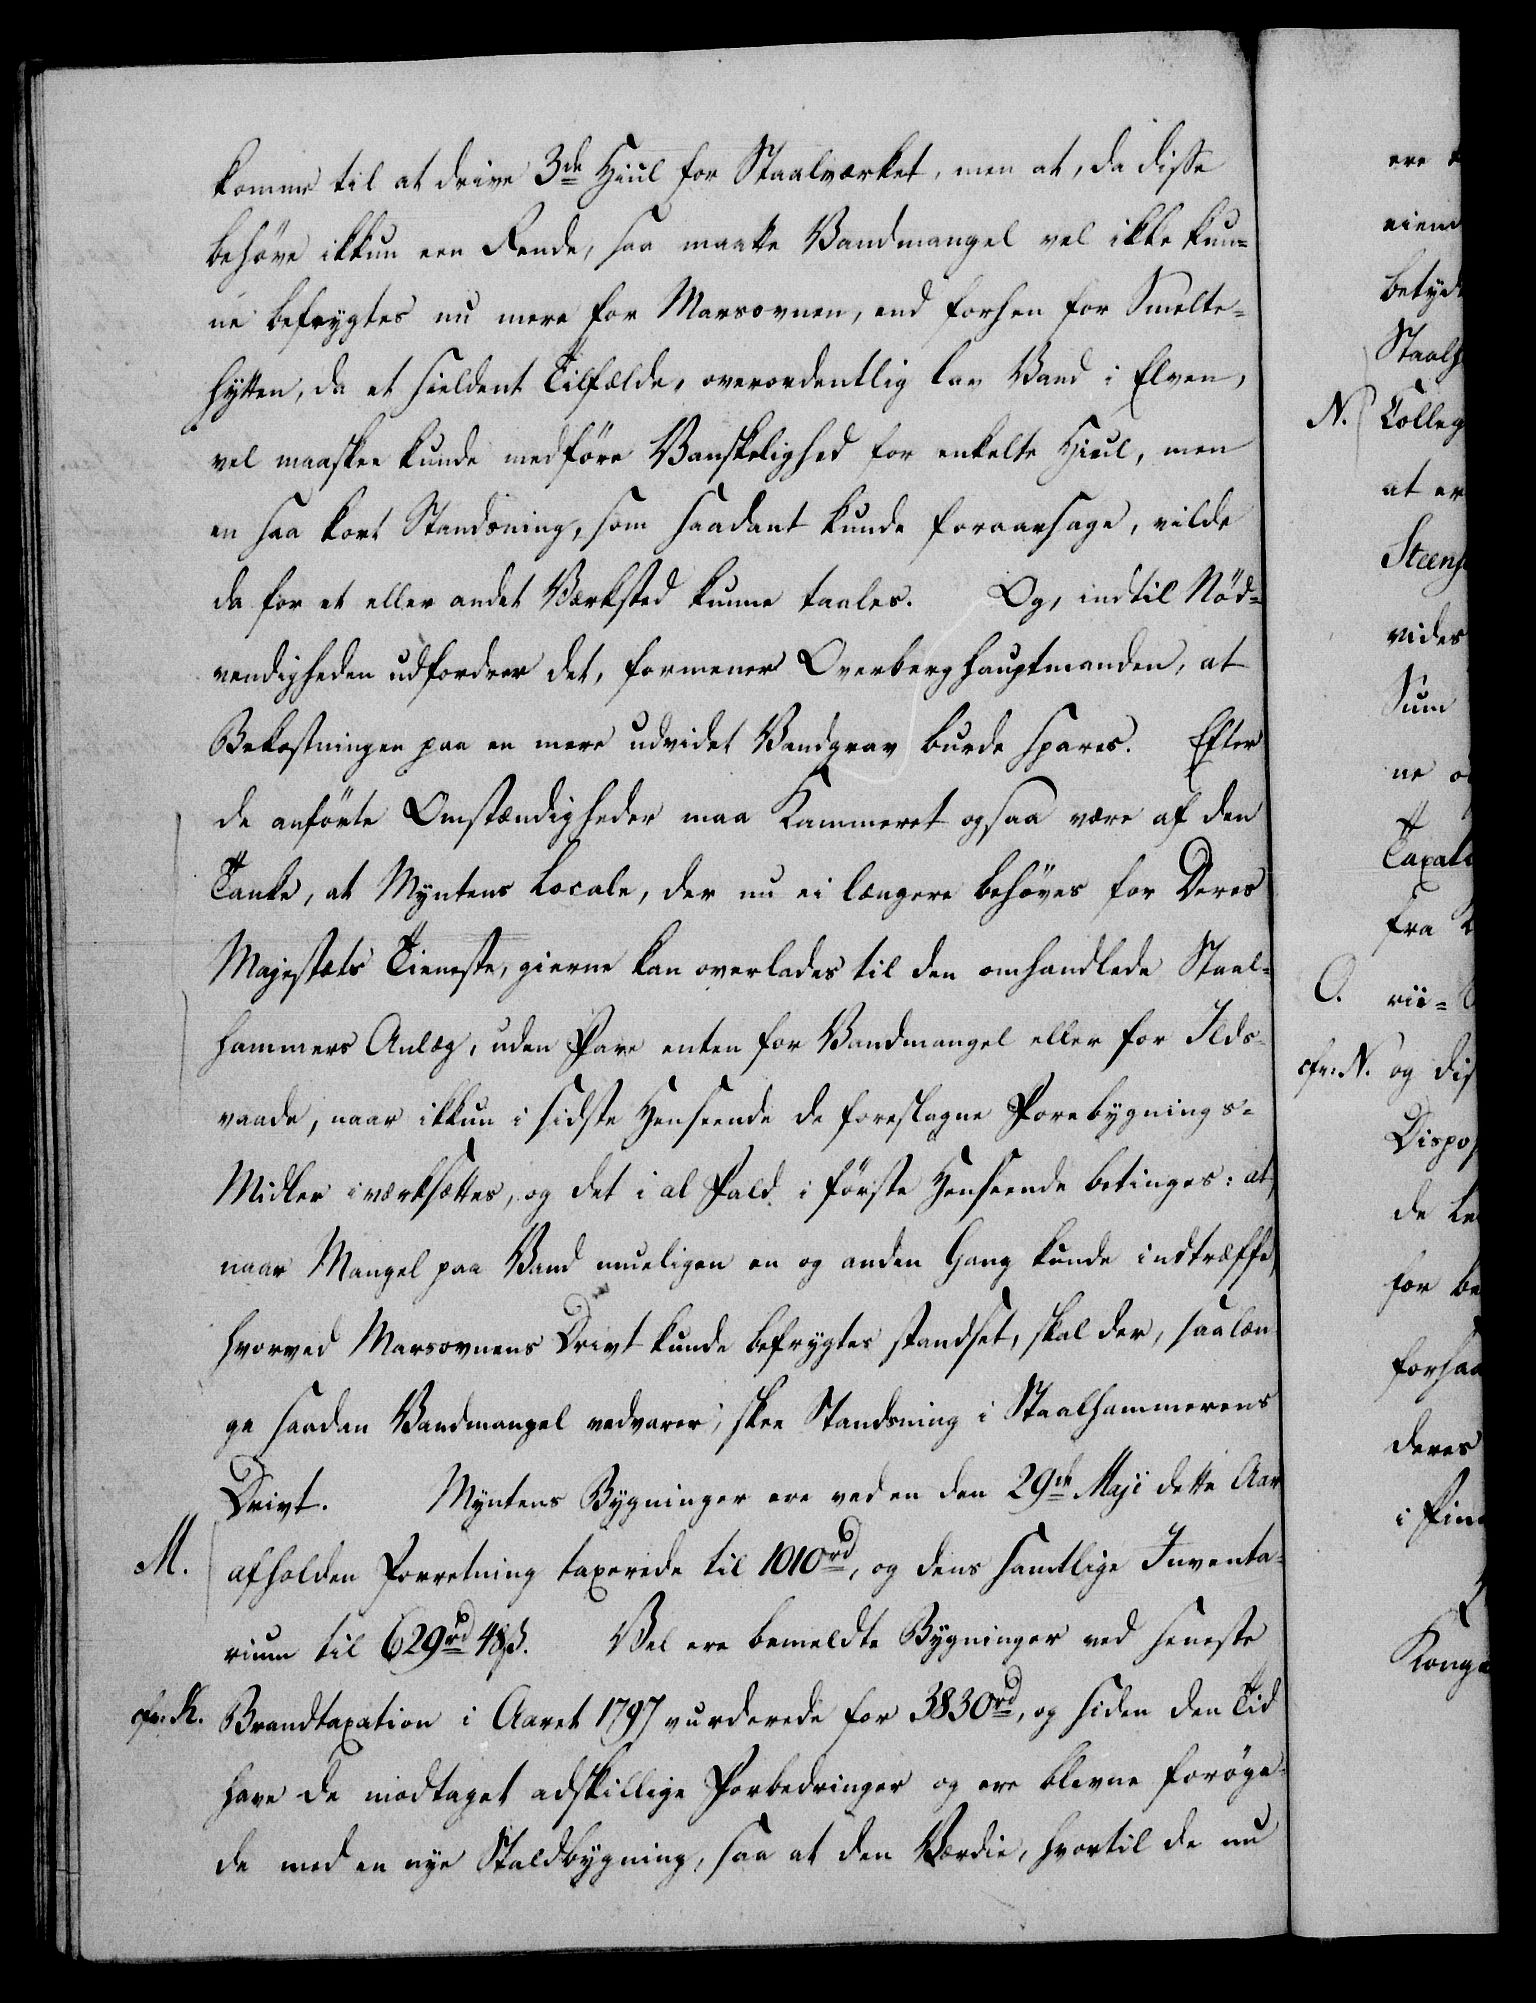 kommer til at drive 3de Hiul for Staalværket, men at, da disse
behöve ikkun een Rende, saa maatte Vandmangel vel ikke kun=
ne befrygtes nu mere for Marsovnen, end forhen for Smelte=
hytten, da et sieldent Tilfælde, overordentlig lav Vand i Elven,
vel maaskee kunde medföre Vanskelighed for enkelte Hiul, men
en saa kort Standsning, som saadant kunde foraarsage, vilde
da for et eller andet Værksted kunne taales. Og, indtil Nöd=
vendigheden udfordrer det, formener Overberghauptmanden, at
Bekostningen paa en mere udvidet Vandgrav burde spares. Efter
de anförte Omstændigheder maa Kammeret ogsaa være af den
Tanke, at Myntens Locale, der nu ei længere behöves for Deres
Majestæts Tieneste, gierne kan overlades til den omhandlede Staal=
hammers Anlæg, uden Fare enten for Vandmangel eller for Ilds=
vaade, naar ikkun i sidste Henseende de foreslagne Forebygnings=
Midler iværksættes, og det i al Fald i förste Henseende betinges: at,
naar Mangel paa Vand mueligen en og anden Gang kunde indtræffe,
hvorved Marsovnens Drivt kunde befrygtes standset, skal der, saalæn
ge saadan Vandmangel vedvarer, skee Standsning i Staalhammerens
Drivt. Myntens Bygninger ere ved en den 29de Maji dette Aar
M. afholden Forretning taxerede til 1010rd, og dens samtlige Inventa=
rium til 629rd 48ß. Vel ere bemeldte Bygninger ved seneste
cfr: K. Brandtaxation i Aaret 1797 vurderede for 3830rd, og siden den Tid
have de modtaget adskillige Forbedringer og ere blevne foröge=
de med en nye Staldbygning, saa at den Værdie, hvortil de nu
ere
eiend
betyd
Staalh
N. Colleg
at er
Steens
vides
Sum
ne o
Taxati
fra
O. rii=
cfr: N. og dis
Dispos
de Le
for be
forsaa
deres
i Fin
Konge